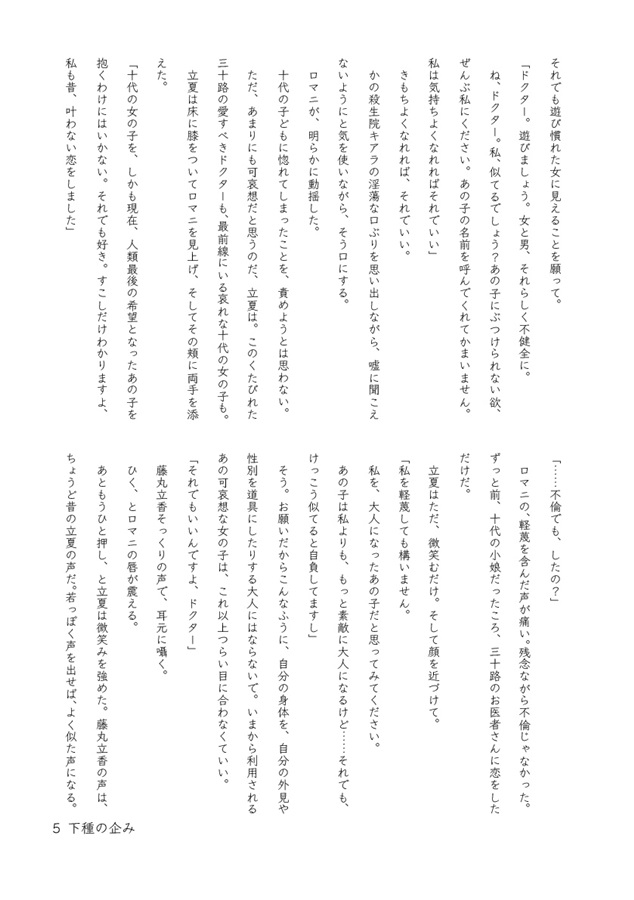 それでも遊び慣れた女に見えることを願って。
「ドクター。遊びましょう。女と男、それらしく不健全に。
ね、ドクター。私、似てるでしょう？あの子にぶつけられない欲、
ぜんぶ私にください。あの子の名前を呼んでくれてかまいません。
私は気持ちよくなれればそれでいい」
きもちよくなれれば、それでいい。
かの殺生院キアラの淫蕩な口ぶりを思い出しながら、嘘に聞こえ
ないようにと気を使いながら、そう口にする。
ロマニが、明らかに動揺した。
十代の子どもに惚れてしまったことを、責めようとは思わない。
ただ、あまりにも可哀想だと思うのだ、立夏は。このくたびれた
三十路の愛すべきドクターも、最前線にいる哀れな十代の女の子も。
立夏は床に膝をついてロマニを見上げ、そしてその頬に両手を添
えた。
「十代の女の子を、しかも現在、人類最後の希望となったあの子を
抱くわけにはいかない。それでも好き。すこしだけわかりますよ、
私も昔、叶わない恋をしました」
「……不倫でも、したの？」
ロマニの、軽蔑を含んだ声が痛い。残念ながら不倫じゃなかった。
ずっと前、十代の小娘だったころ、三十路のお医者さんに恋をした
だけだ。
立夏はただ、微笑むだけ。そして顔を近づけて。
「私を軽蔑しても構いません。
私を、大人になったあの子だと思ってみてください。
あの子は私よりも、もっと素敵に大人になるけど……それでも、
けっこう似てると自負してますし」
そう。お願いだからこんなふうに、自分の身体を、自分の外見や
性別を道具にしたりする大人にはならないで。いまから利用される
あの可哀想な女の子は、これ以上つらい目に合わなくていい。
「それでもいいんですよ、ドクター」
藤丸立香そっくりの声で、耳元に囁く。
ひく、とロマニの唇が震える。
あともうひと押し、と立夏は微笑みを強めた。藤丸立香の声は、
ちょうど昔の立夏の声だ。若っぽく声を出せば、よく似た声になる。
5 下種の企み